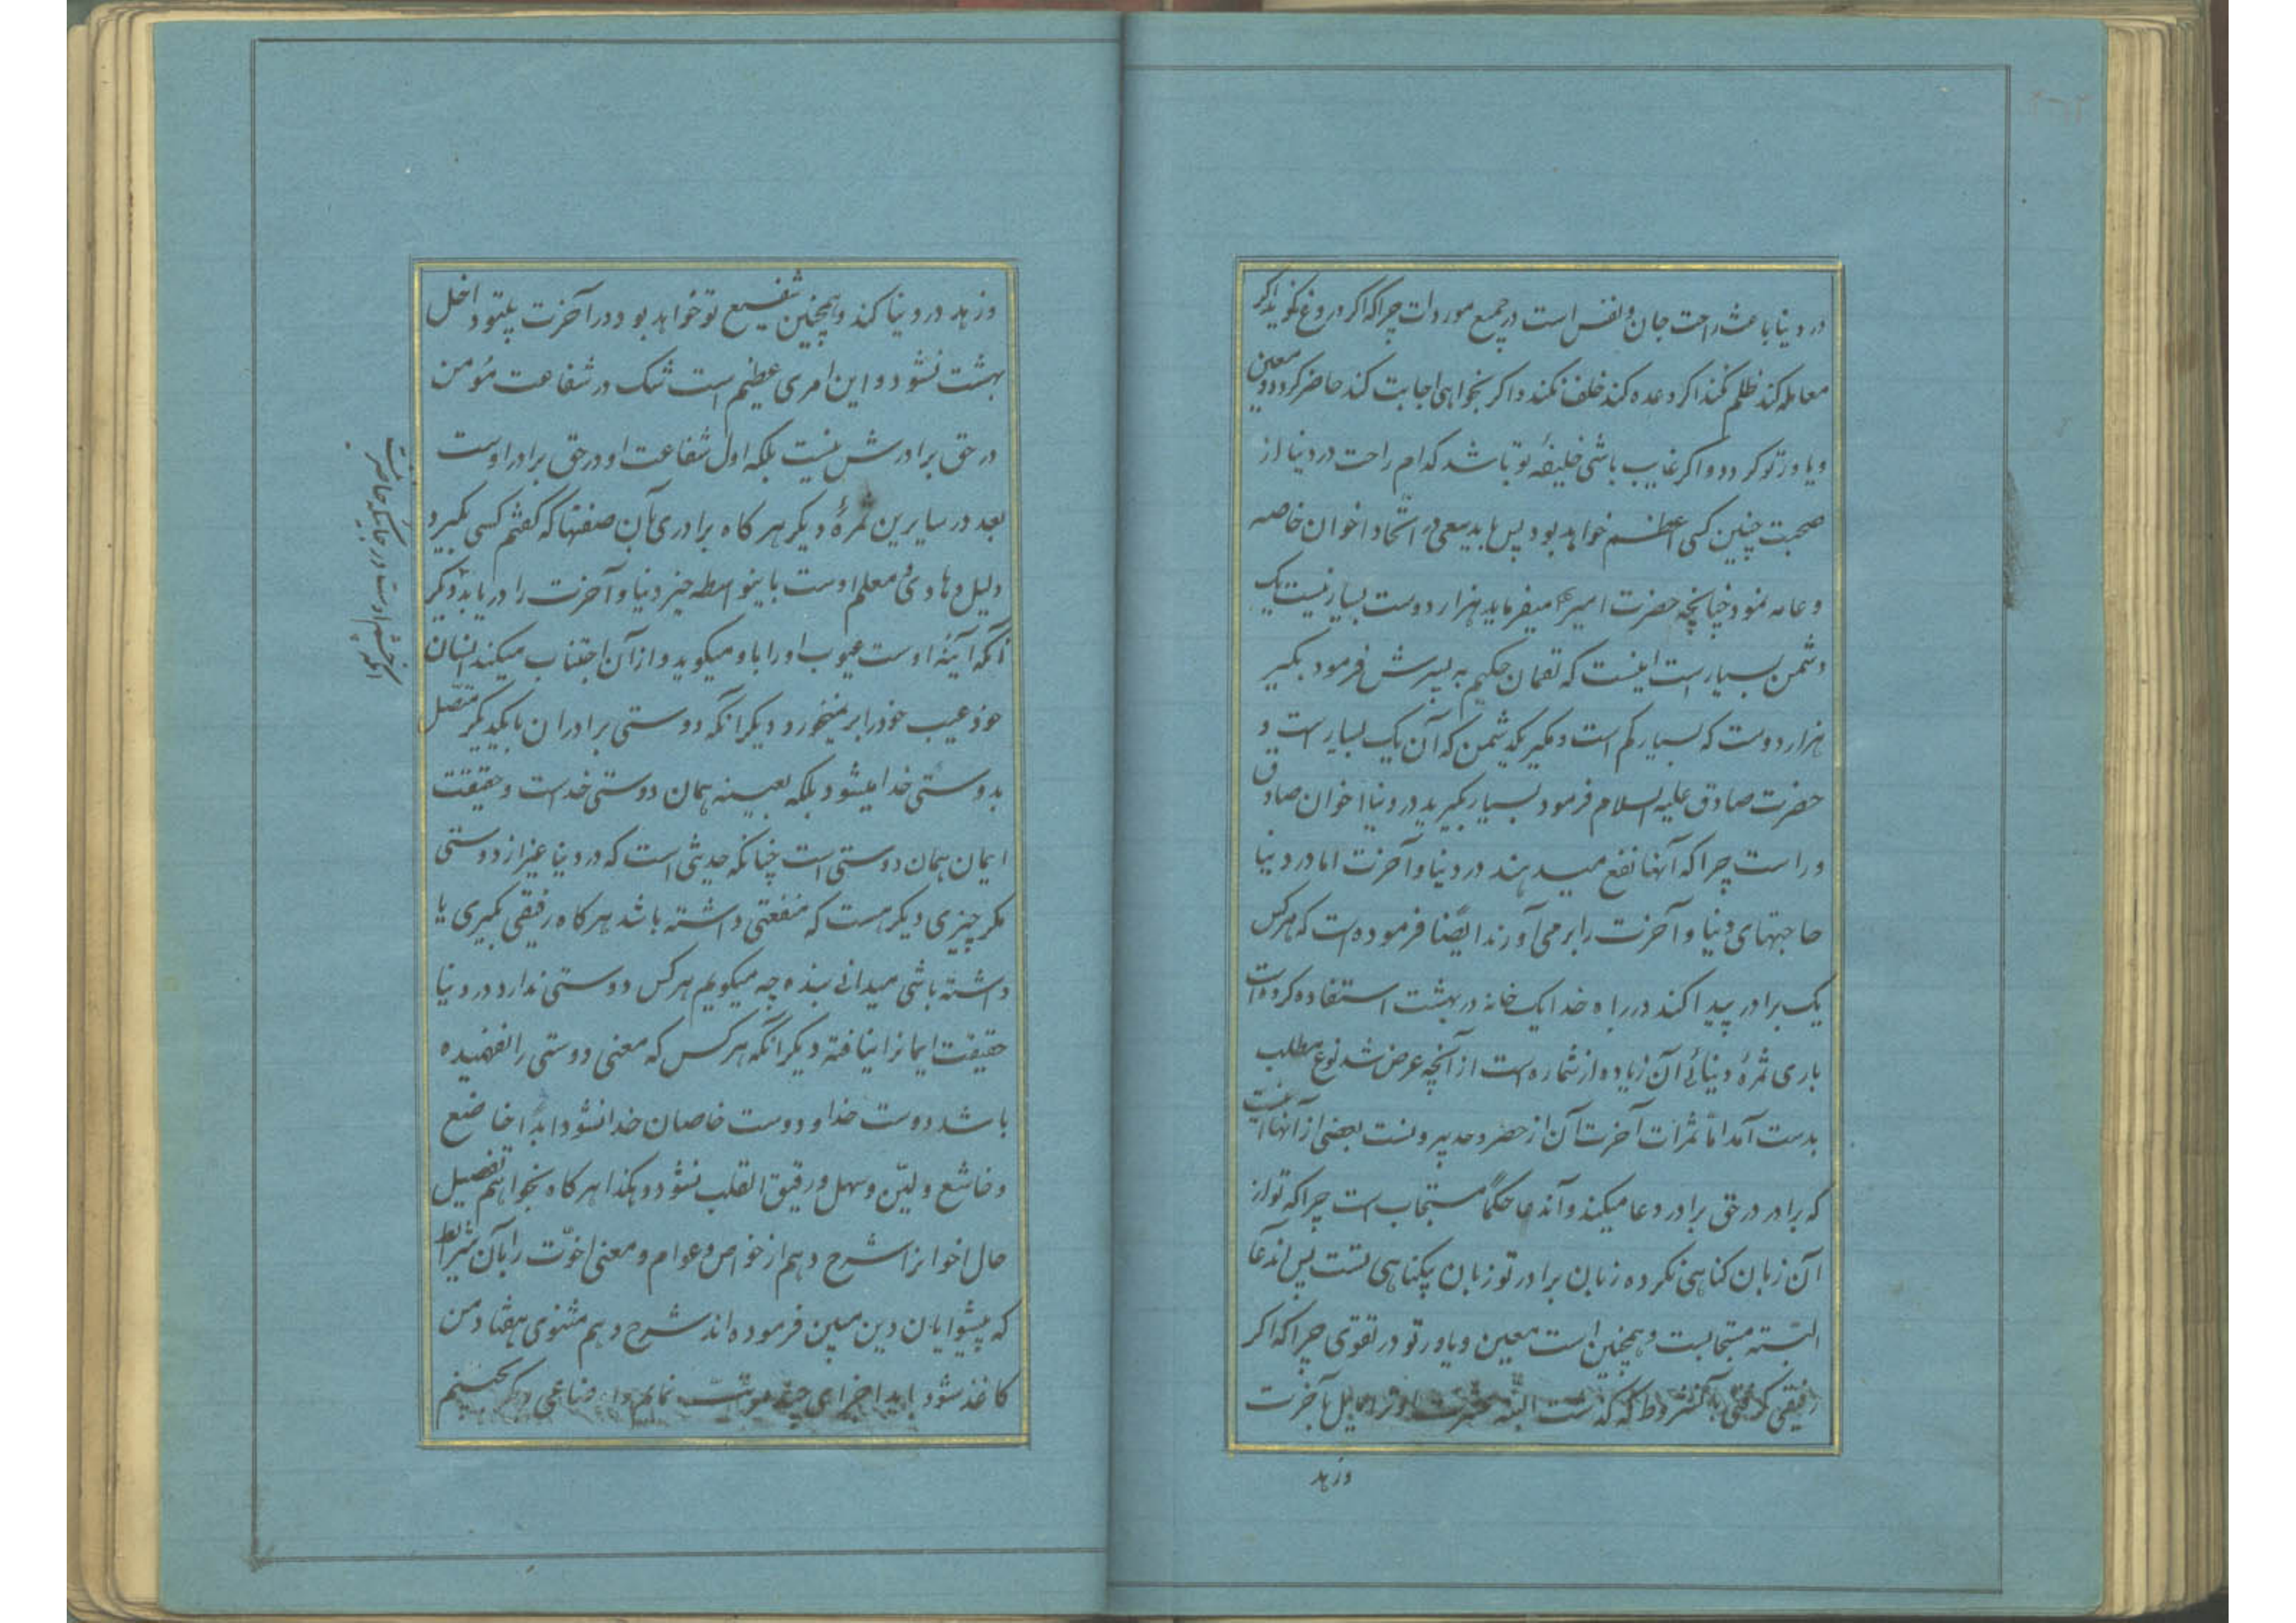 در دنیا باعث راحت جان و نفس است در جمیع موردات چرا که اگر دروغ نگوید اگر
معامله کند ظلم نکند اگر وعده کند خلف نکند و اگر بخواهی اجابت کند حاضر گردد و معین
و یاور تو گردد و اگر غایب باشی خلیفهٔ تو باشد کدام راحت در دنیا از
صحبت چنین کسی اعظم خواهد بود پس باید سعی در اتخاذ اخوان خاصه
و عامه نمود چنانچه حضرت امیر میفرماید هزار دوست بسیار نیست یک
دشمن بسیار است اینست که لقمان حکیم به پسرش فرمود بگیر
هزار دوست که بسیار کم است و مگیر یکدشمن که آن یک بسیار است و
حضرت صادق علیه السلام فرمود بسیار بگیرید در دنیا اخوان صادق
و راست چرا که آنها نفع میدهند در دنیا و آخرت اما در دنیا
حاجتهای دنیا و آخرت را بر می آورند ایضا فرموده است که هر کس
یک برادر پیدا کند در راه خدا یک خانه در بهشت استفاده کرده است
باری ثمرهٔ دنیائی آن زیاده از شماره است از آنچه عرض شد نوع مطلب
بدست آمد اما ثمرات آخرت آن از حصر و حد بیرونست بعضی از آنها اینست
که برادر در حق برادر دعا میکند و آندعا حکماً مستجاب است چرا که تو از
آن زبان گناهی نکرده زبان برادر تو زبان بیگناهی تست پس اندعا
البته مستجابست و همچنین است معین و یاور تو در تقوی چرا که اگر
رفیقی گرفتی بآنشروط که گذشت البته او ترا مایل بآخرت
وزهد
وزهد در دنیا کند و همچنین شفیع تو خواهد بود در آخرت بیتو داخل
بهشت نشود و این امری عظیم است شک در شفاعت مؤمن
در حق برادرش نیست بلکه اول شفاعت او در حق برادر اوست
بعد در سایرین ثمرهٔ دیگر هر گاه برادری بآن صفتها که گفتم کسی بگیرد
دلیل و هادی و معلم اوست باینواسطه خیر دنیا و آخرت را در یابد دیگر
آنکه آینه اوست عیوب او را باو میگوید و از آن اجتناب میکند انسان
خود عیب خود را بر نمیخورد دیگر آنکه دوستی برادران با یکدیگر متصل
بدوستی خدا میشود بلکه بعینه همان دوستی خداست و حقیقت
ایمان همان دوستی است چنانکه حدیثی است که در دنیا غیر از دوستی
مگر چیزی دیگر هست که منفعتی داشته باشد هر گاه رفیقی بگیری یا
داشته باشی میدانی بنده چه میگویم هر کس دوستی ندارد در دنیا
حقیقت ایمانرا نیافته دیگر آنکه هر کس که معنی دوستی را نفهمیده
باشد دوست خدا و دوست خاصان خدا نشود ابداً خاضع
و خاشع و لیّن و سهل و رقیق القلب نشود و هکذا هر گاه بخواهم تفصیل
حال اخوانرا شرح دهم از خواص و عوام و معنی اخوّت را بآن شرائط
که پیشوایان دین مبین فرموده اند شرح دهم مثنوی هفتاد من
کاغذ شود باید اجزای چند
آنکه چشم اوست در جائیکه حاضر نیست